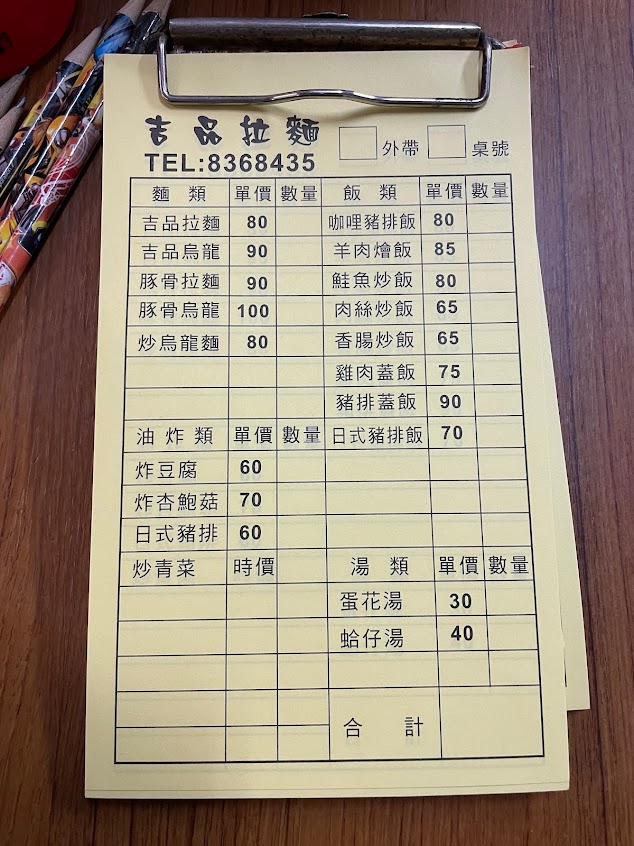 吉品拉麵
TEL:8368435 外帶 桌號
麵類 單價 數量 飯類 單價 數量
吉品拉麵 80 咖哩豬排飯 80
吉品烏龍 90 羊肉燴飯 85
豚骨拉麵 90 鮭魚炒飯 80
豚骨烏龍 100 肉絲炒飯 65
炒烏龍麵 80 香腸炒飯 65
雞肉蓋飯 75
豬排蓋飯 90
油炸類 單價 數量 日式豬排飯 70
炸豆腐 60
炸杏鮑菇 70
日式豬排 60
炒青菜 時價 湯類 單價 數量
蛋花湯 30
蛤仔湯 40
合計